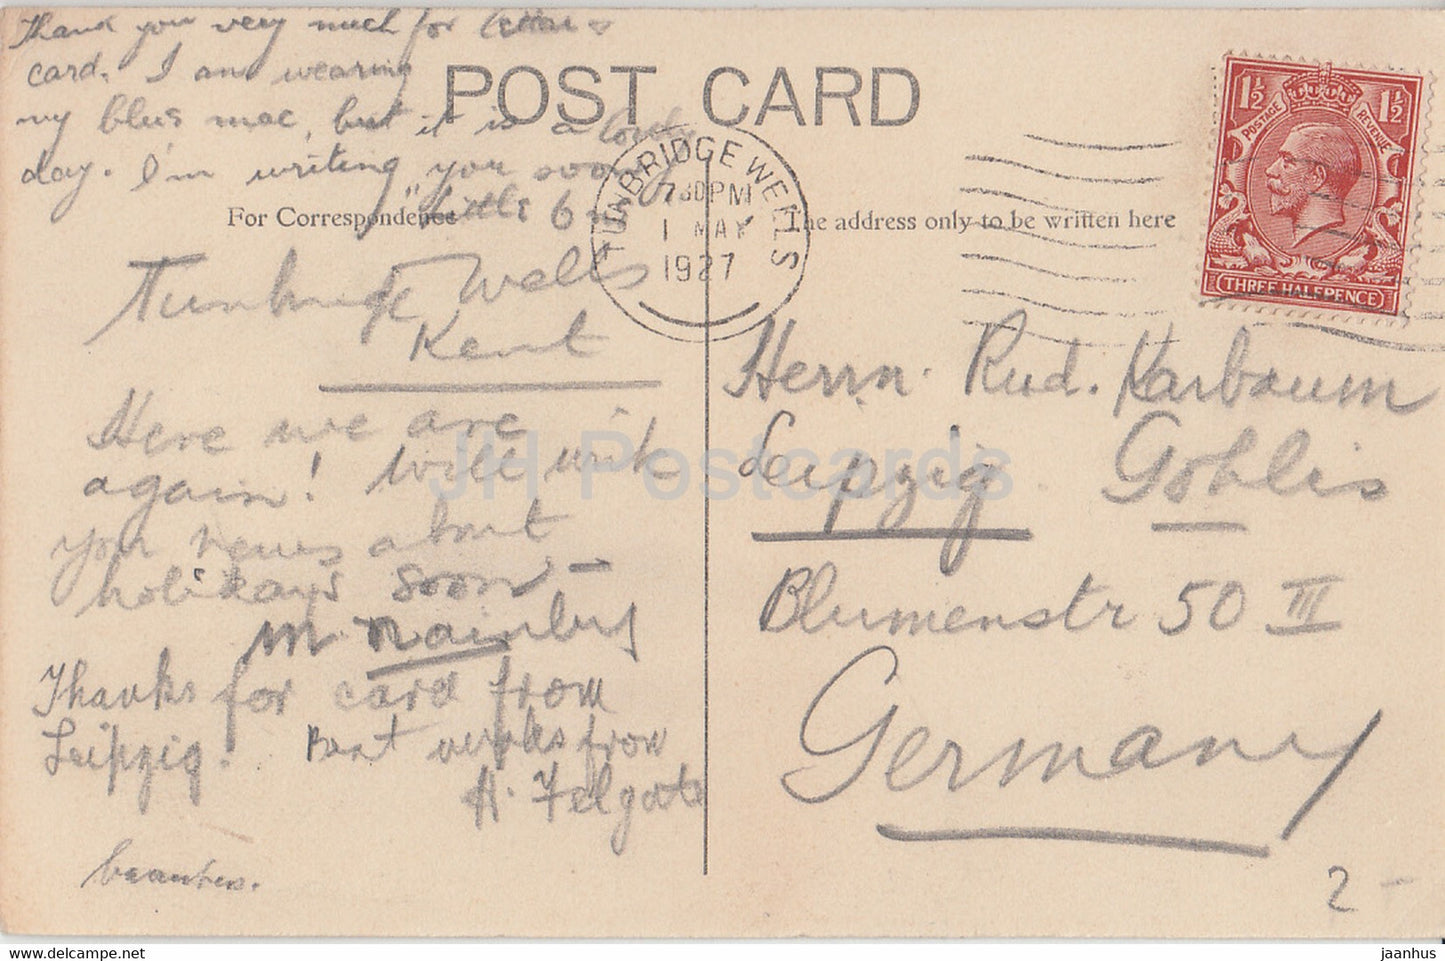 Thank you very much for letter &
card. I am wearing
my blue mac, but it is a lovely
day. I'm writing you soon
"Little 6
POST CARD
For Correspondence
The address only to be written here
TUNBRIDGE WELLS
7 30 PM
1 MAY
1927
1½ 1½
POSTAGE REVENUE
THREE HALFPENCE
Tunbridge Wells
Kent
Here we are
again! Will writ
you news about
holidays soon –
M
Thanks for card from
Leipzig. Best wishes from
A. Felgate
Herrn. Rud. Karbaum
Leipzig Gohlis
Blumenstr 50 III
Germany
2 –
JH Postcards
www.hippostcard.com
jaanhus